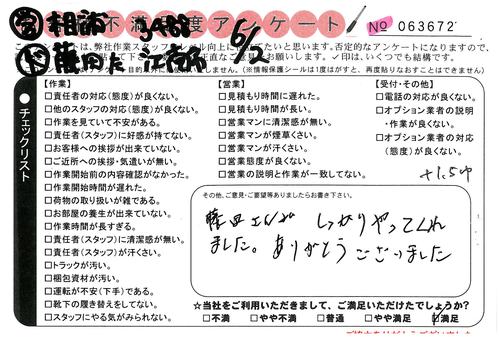 営 不満足度アンケート No 063672
6/2
【作業】
□責任者の対応(態度)が良くない。
□他のスタッフの対応(態度)が良くない。
□作業を見ていて不安がある。
□責任者(スタッフ)に好感が持てない。
□お客様への挨拶が出来ていない。
□ご近所への挨拶・気遣いが無い。
□作業開始前の内容確認がなかった。
□作業開始時間が遅れた。
□荷物の取り扱いが雑である。
□お部屋の養生が出来ていない。
□作業時間が長すぎる。
□責任者(スタッフ)に清潔感が無い。
□責任者(スタッフ)が汗くさい。
□トラックが汚い。
□梱包資材が汚い。
□運転が不安(下手)である。
□靴下の履き替えをしてない。
□スタッフにやる気がみられない。
●チェックリスト
【営業】
□見積もり時間に遅れた。
□見積もり時間が長い。
□営業マンに清潔感が無い。
□営業マンが煙草くさい。
□営業マンが汗くさい。
□営業態度が良くない。
□営業の説明と作業が一致してない。
【受付・その他】
□電話の対応が良くない。
□オプション業者の説明
・作業が良くない。
□オプション業者の対応
(態度)が良くない。
その他、ご意見・ご要望等ありましたらお書き下さい。
しっかりやってくれ
ました。ありがとうございました
☆当社をご利用いただきまして、ご満足いただけたでしょうか?
□不満 □やや不満 □普通 □やや満足 ☑満足